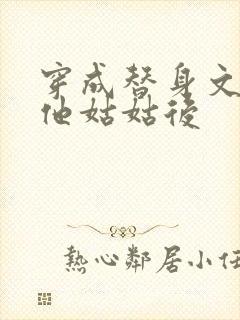 穿成替身文
他姑姑後
熱心鄰居小任